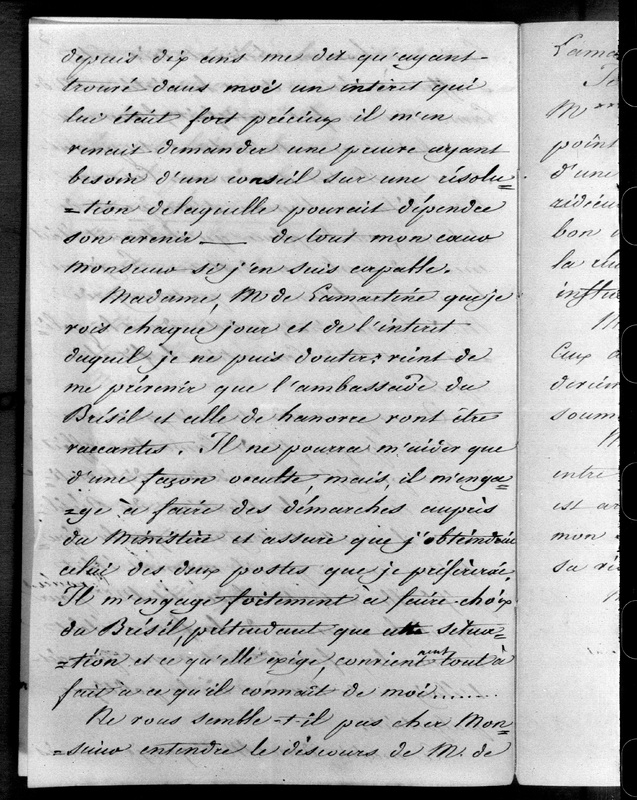 depuis dix ans me dit qu'ayant
trouvé dans moi un intérêt qui
lui était fort précieux il m'en
venait demander une preuve ayant
besoin d'un conseil sur une résolu=
=tion delaquelle pourait dépendre
son avenir — de tout mon cœur
Monsieur si j'en suis capable.
Madame, M. de Lamartine que je
vois chaque jour et de l'interet
duquel je ne puis douter; vient de
me prévenir que l'ambassade du
Brésil et celle de hanovre vont être
vaccantes. Il ne pourra m'aider que
d'une façon occulte mais, il m'enga=
=ge à faire des démarches auprès
du Ministère et assure que j'obtiendrai
celui des deux postes que je préfèrerai.
Il m'engage fortement à faire choix
du Brésil, prétendant que cette situa=
=tion et ce qu'elle exige, convient tout à
fait a ce qu'il connait de moi.......
Ne vous semble-t-il pas cher Mon=
=sieur entendre le discours de M. de
Lama
M
point
d'une
bon
la
eux
soum
entre
est
mon
sa